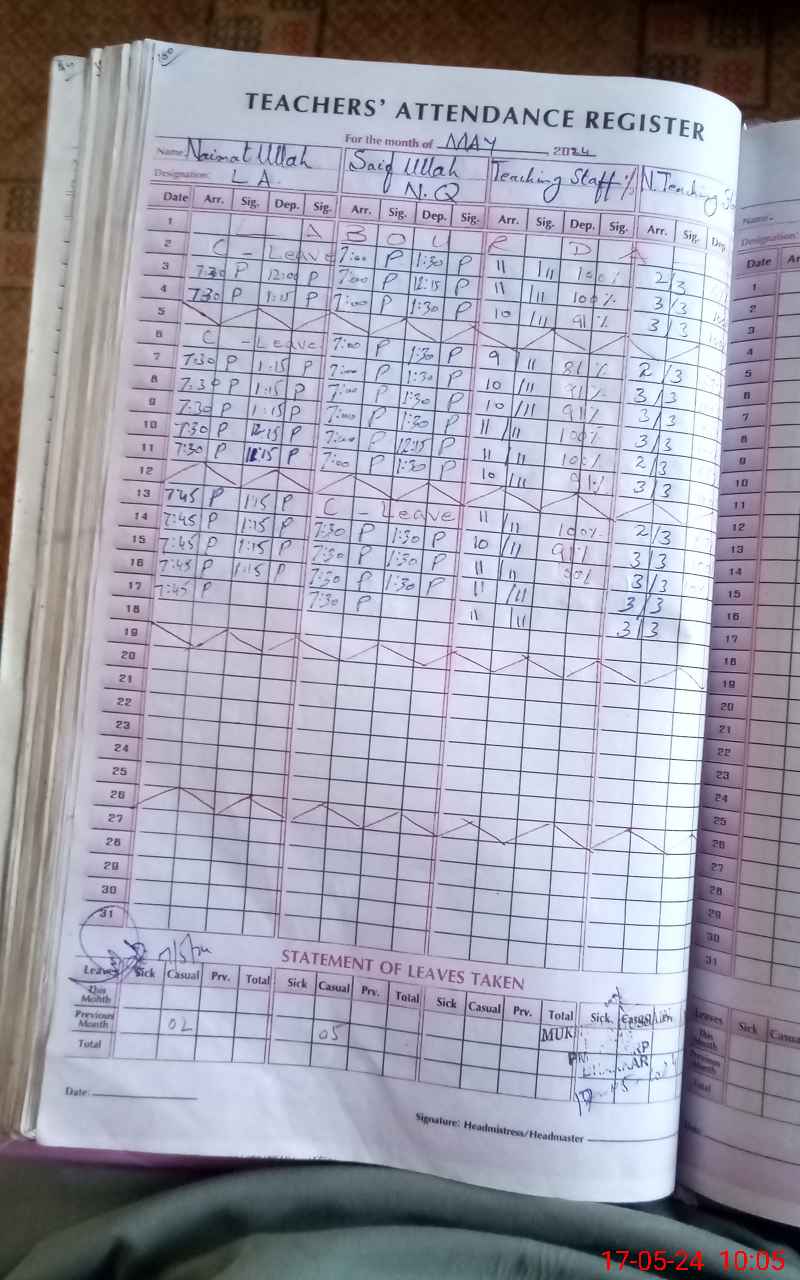 TEACHERS' ATTENDANCE REGISTER
For the month of MAY 2024
Name: Naimat Ullah Saif Ullah Teaching Staff % N. Teaching
Designation: L A. N.Q
Date Arr. Sig. Dep. Sig. Arr. Sig. Dep. Sig. Arr. Sig. Dep. Sig. Arr. Sig. Dep.
1 L A B O U R D A
2 C - Leave 7:00 P 1:30 P 11 /11 100% 2/3
3 7:30 P 12:00 P 7:00 P 12:15 P 11 /11 100% 3/3
4 7:30 P 1:15 P 7:00 P 1:30 P 10 /11 91% 3/3
5
6 C - Leave 7:00 P 1:30 P 9 /11 81% 2/3
7 7:30 P 1:15 P 7:00 P 1:30 P 10 /11 91% 3/3
8 7:30 P 1:15 P 7:00 P 1:30 P 10 /11 91% 3/3
9 7:30 P 1:15 P 7:00 P 1:30 P 11 /11 100% 3/3
10 7:30 P 12:15 P 7:00 P 12:15 P 11 /11 100% 2/3
11 7:30 P 1:15 P 7:00 P 1:30 P 10 /11 91% 3/3
12
13 7:45 P 1:15 P C - Leave 11 /11 100% 2/3
14 7:45 P 1:15 P 7:30 P 1:30 P 10 /11 91% 3/3
15 7:45 P 1:15 P 7:30 P 1:30 P 11 /11 3/3
16 7:45 P 1:15 P 7:30 P 1:30 P 11 /11 3/3
17 7:45 P 7:30 P 11 /11 3/3
18
19
20
21
22
23
24
25
26
27
28
29
30
31
STATEMENT OF LEAVES TAKEN
Leaves Sick Casual Prv. Total Sick Casual Prv. Total Sick Casual Prv. Total Sick Casual
This Month
Previous Month 02 05
Total
Date:
Signature: Headmistress/Headmaster
Name.
Designation:
Date
1
2
3
4
5
6
7
8
9
10
11
12
13
14
15
16
17
18
19
20
21
22
23
24
25
26
27
28
29
30
31
Leaves Sick Casual
This Month
Previous Month
Total
17-05-24 10:05